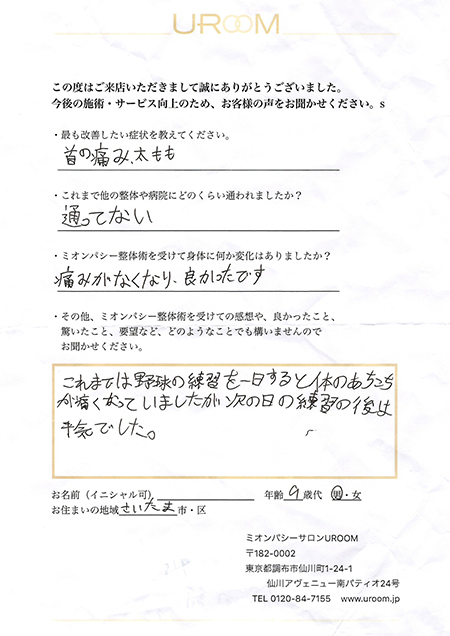 UROOM
この度はご来店いただきまして誠にありがとうございました。
今後の施術・サービス向上のため、お客様の声をお聞かせください。s
・最も改善したい症状を教えてください。
首の痛み、太もも
・これまで他の整体や病院にどのくらい通われましたか？
通ってない
・ミオンパシー整体術を受けて身体に何か変化はありましたか？
痛みがなくなり、良かったです
・その他、ミオンパシー整体術を受けての感想や、良かったこと、
驚いたこと、要望など、どのようなことでも構いませんので
お聞かせください。
これまでは野球の練習を一日すると体のあちこち
が痛くなっていましたが次の日の練習の後は
平気でした。
お名前（イニシャル可） 年齢 9 歳代 男・女
お住まいの地域 さいたま 市・区
ミオンパシーサロンUROOM
〒182-0002
東京都調布市仙川町1-24-1
仙川アヴェニュー南パティオ24号
TEL 0120-84-7155 www.uroom.jp